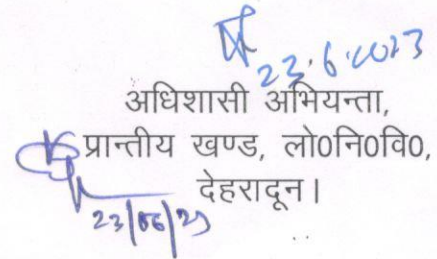 23.6.2023
अधिशासी अभियन्ता,
प्रान्तीय खण्ड, लो0नि0वि0,
देहरादून।
23/06/23